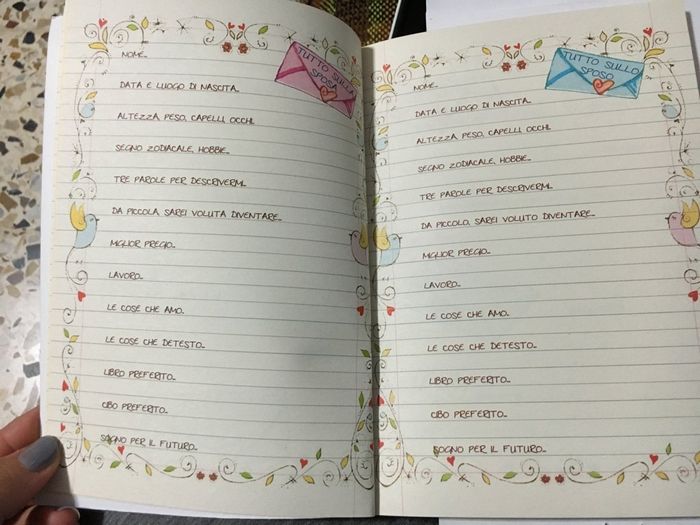 TUTTO SULLA
SPOSA
NOME...
DATA E LUOGO DI NASCITA...
ALTEZZA, PESO, CAPELLI, OCCHI...
SEGNO ZODIACALE, HOBBIE...
TRE PAROLE PER DESCRIVERMI...
DA PICCOLA, SAREI VOLUTA DIVENTARE...
MIGLIOR PREGIO...
LAVORO...
LE COSE CHE AMO...
LE COSE CHE DETESTO...
LIBRO PREFERITO...
CIBO PREFERITO...
SOGNO PER IL FUTURO...
TUTTO SULLO
SPOSO
NOME...
DATA E LUOGO DI NASCITA...
ALTEZZA, PESO, CAPELLI, OCCHI...
SEGNO ZODIACALE, HOBBIE...
TRE PAROLE PER DESCRIVERMI...
DA PICCOLO, SAREI VOLUTO DIVENTARE...
MIGLIOR PREGIO...
LAVORO...
LE COSE CHE AMO...
LE COSE CHE DETESTO...
LIBRO PREFERITO...
CIBO PREFERITO...
SOGNO PER IL FUTURO...